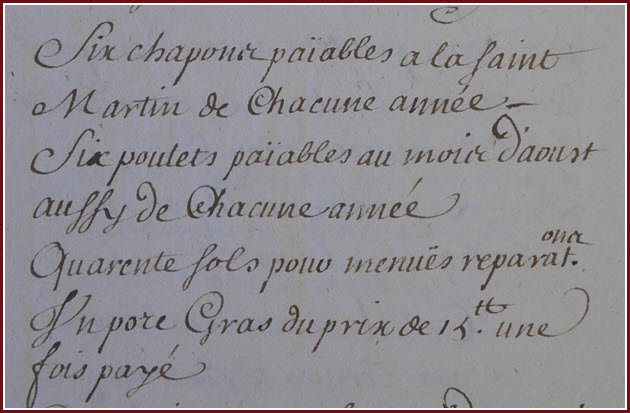 Six chapons païables a la saint
Martin de Chacune année –
Six poulets païables au mois d'aoust
aussy de Chacune année
Quarente sols pour menües reparat.ons
Un porc Gras du prix de 15.tt une
fois payé